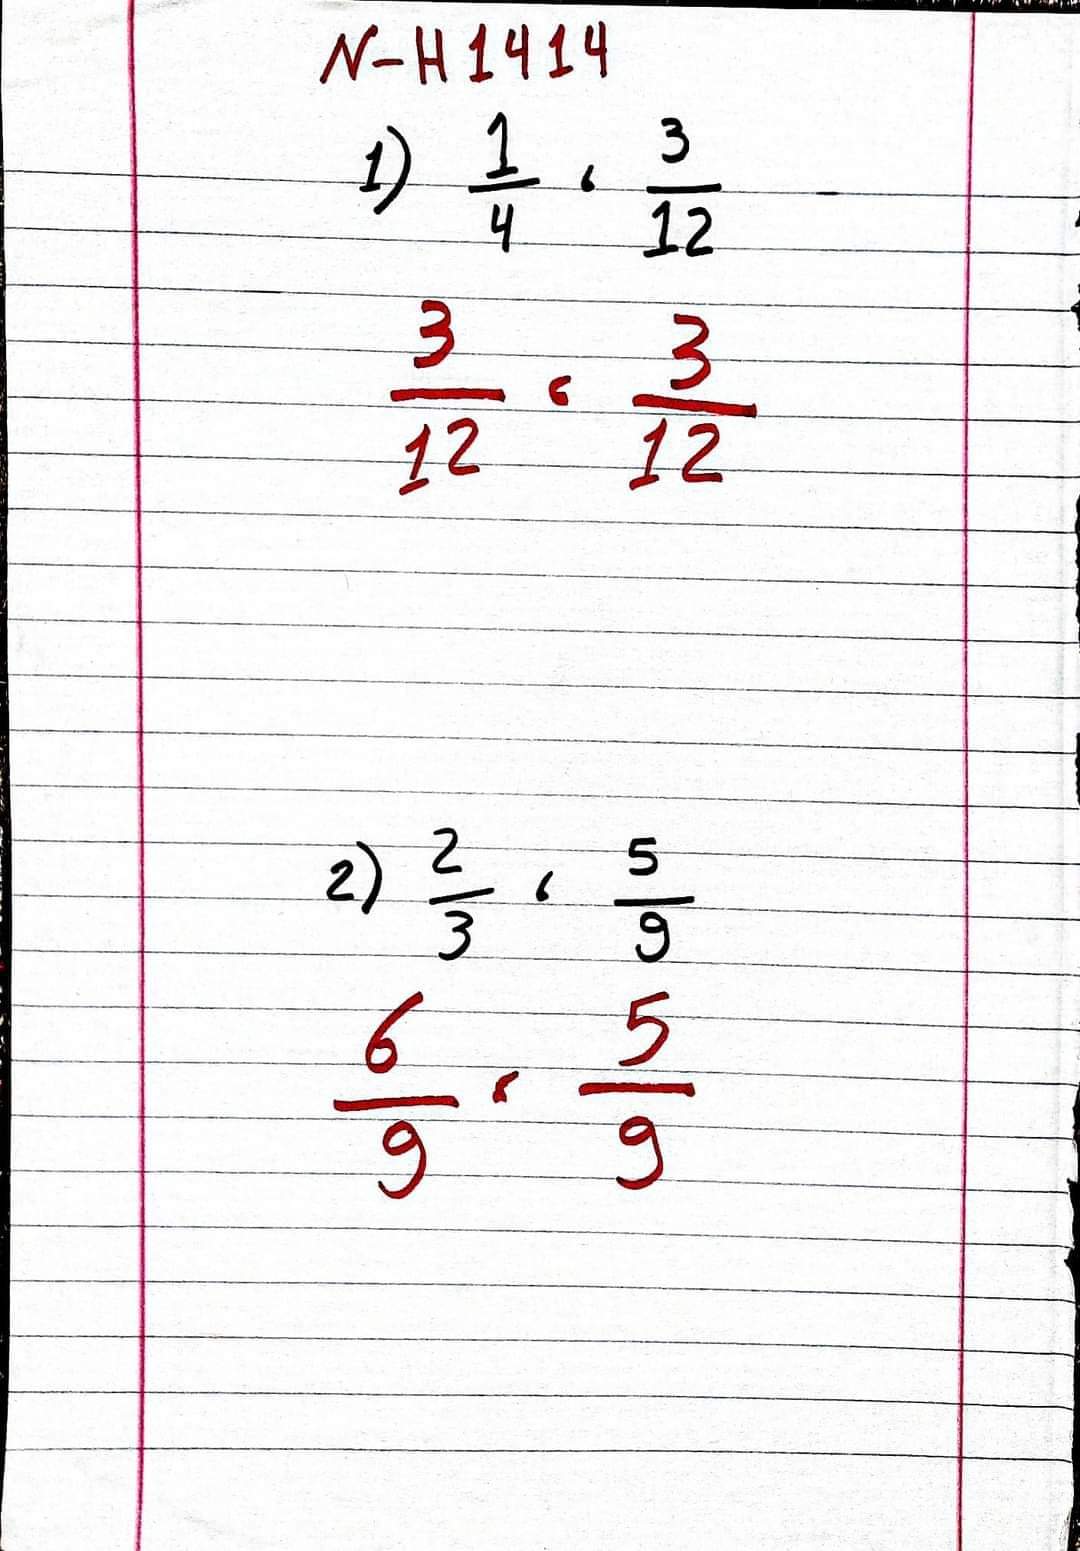 N-H1414
1) 1/4 ، 3/12
3/12 ، 3/12
2) 2/3 ، 5/9
6/9 ، 5/9